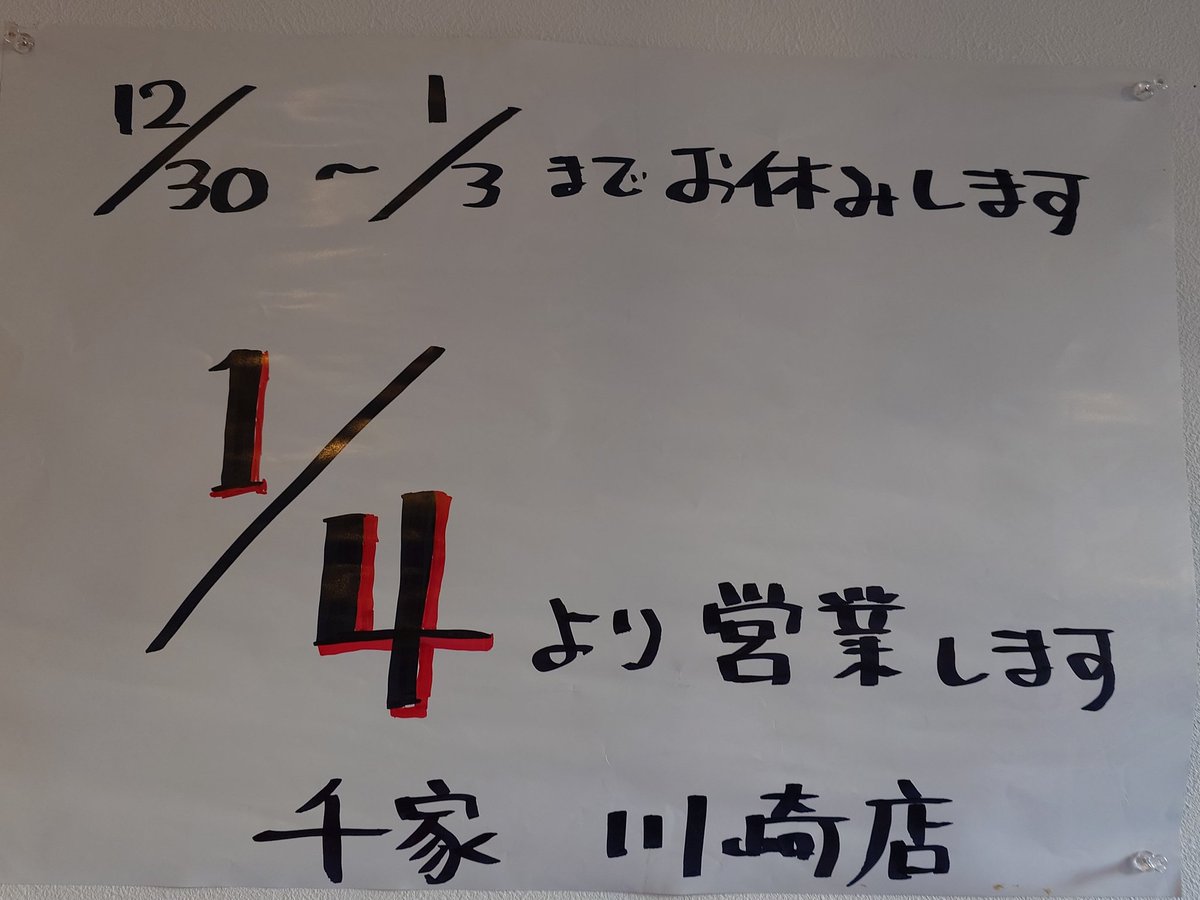 12/30 ~ 1/3 までお休みします
1/4 より営業します
千家 川崎店